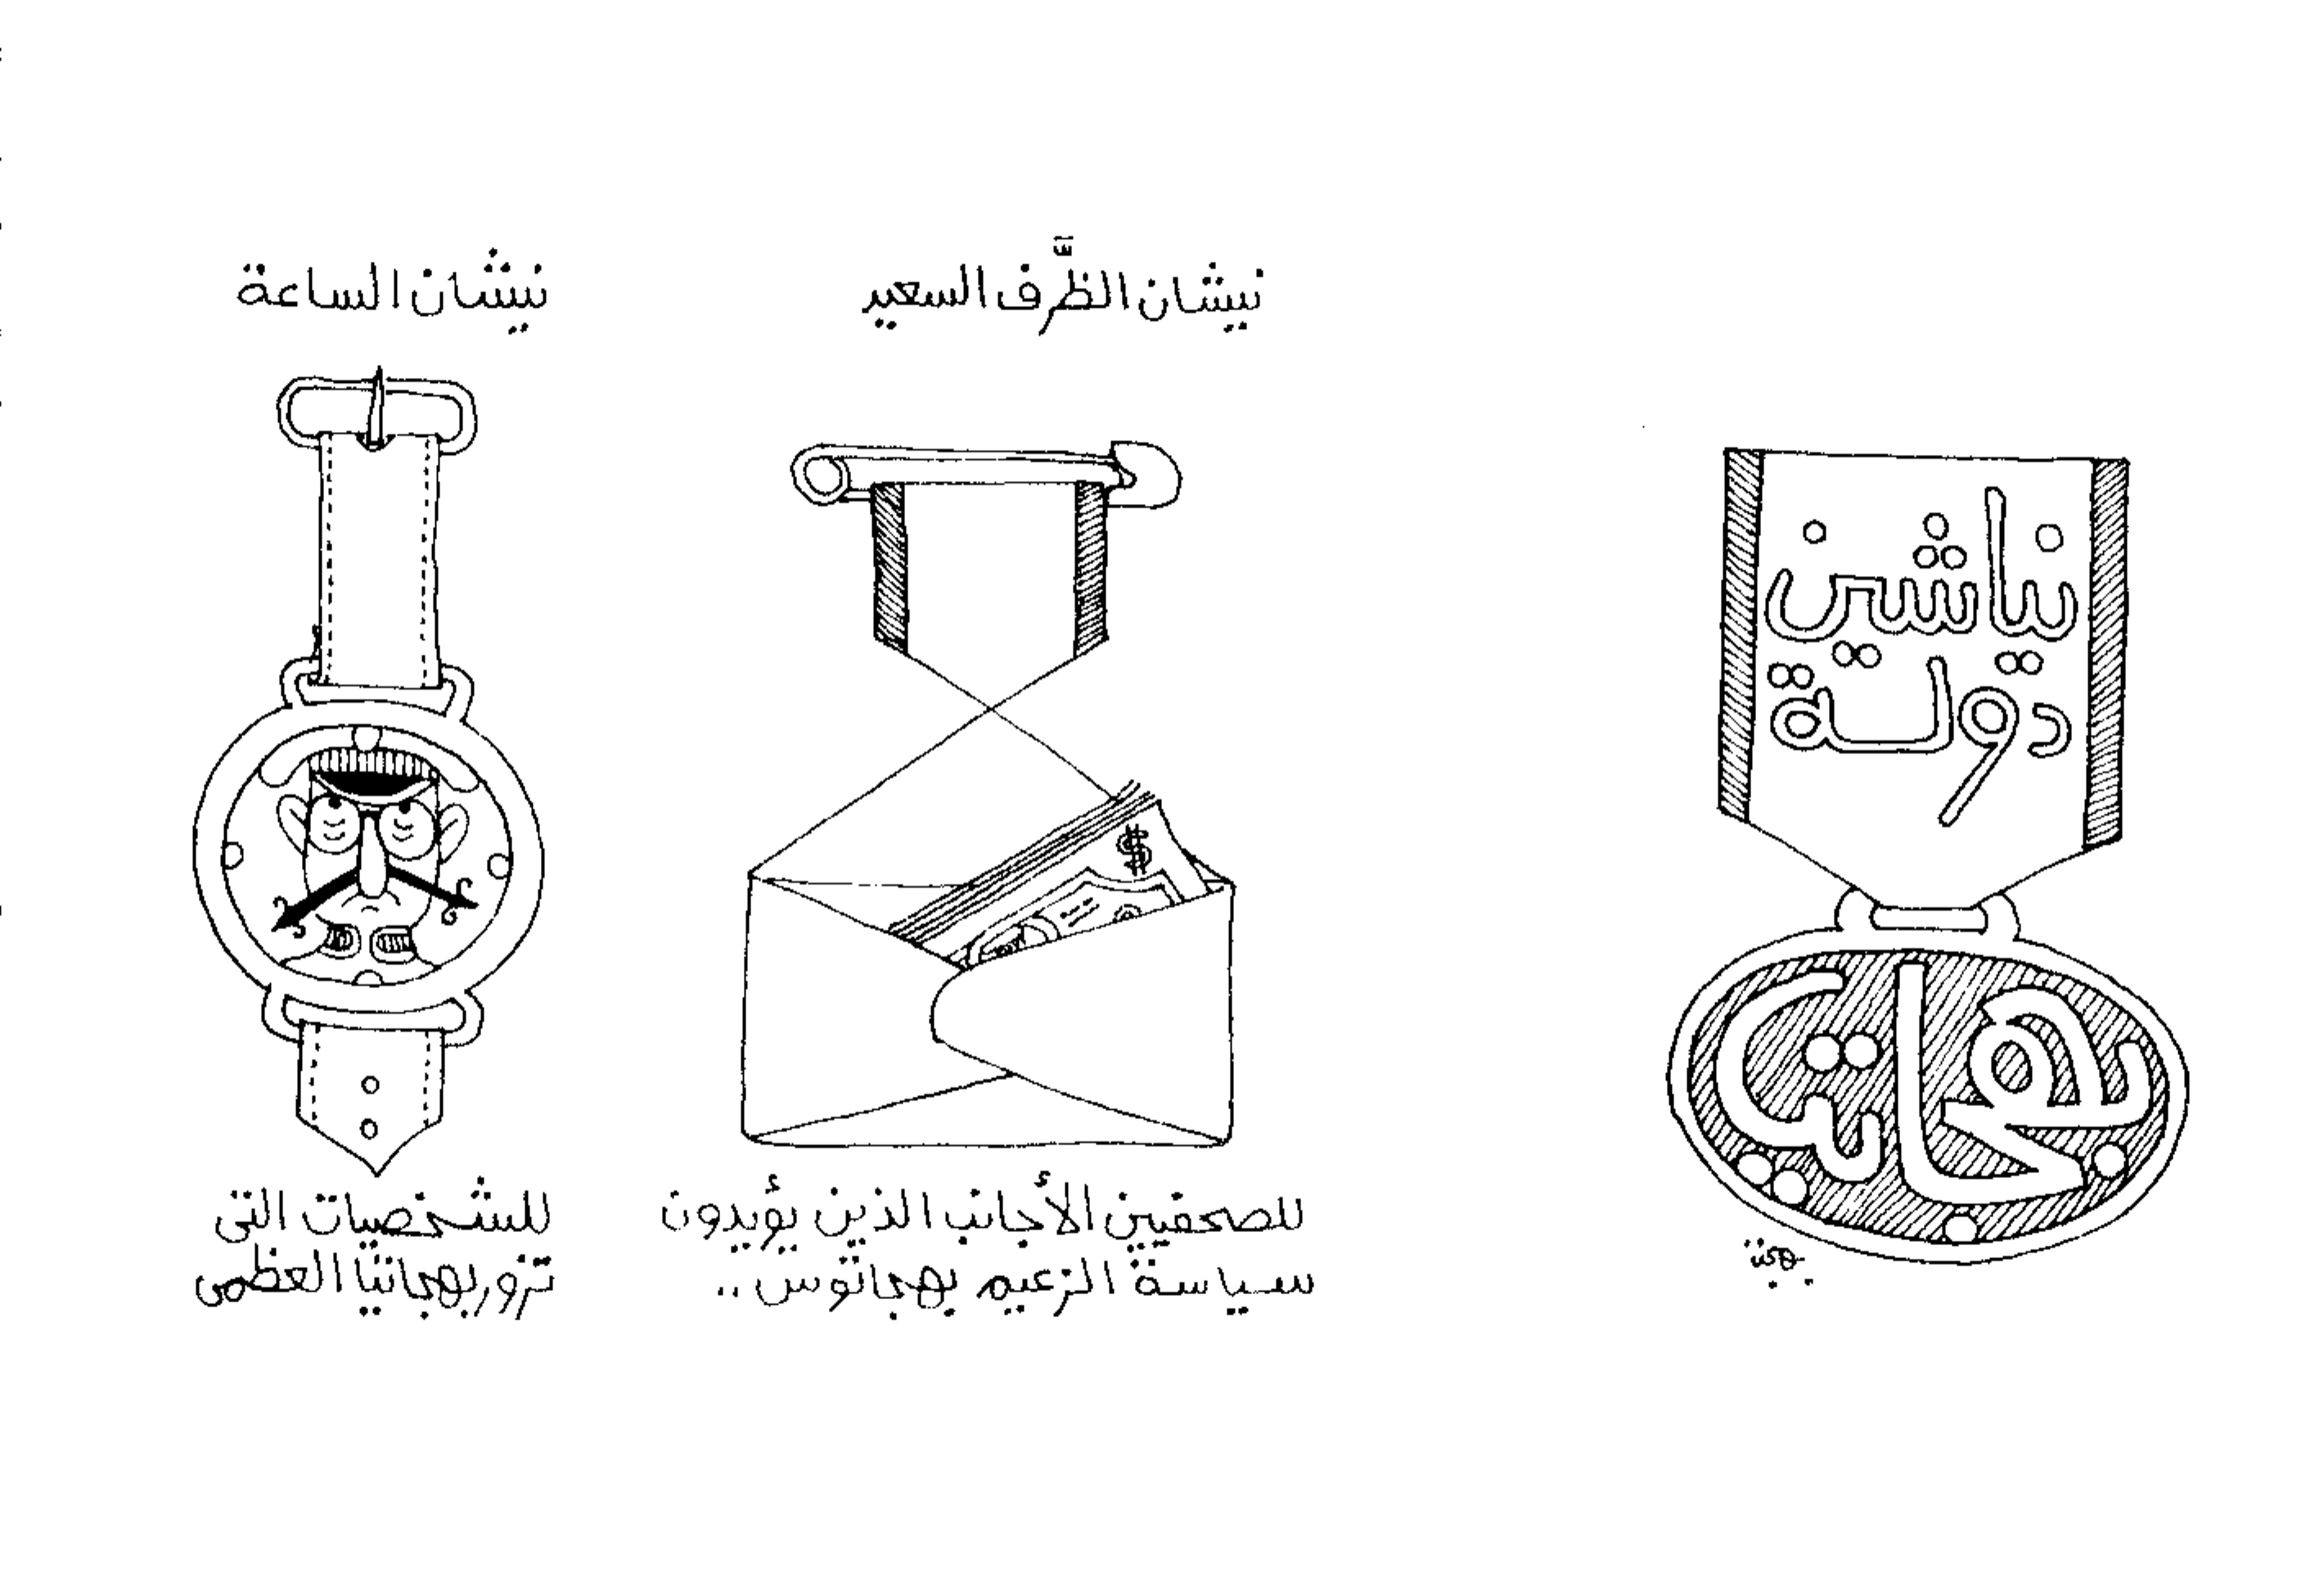 نياشين
دولة
بهجاتيا
نيشان الظَّرف السعيد
$
للصحفيين الأجانب الذين يؤيدون
سياسة الزعيم بهجاتوس ..
نيشان الساعة
للشخصيات التى
تزور بهجاتيا العظمى
بهجت